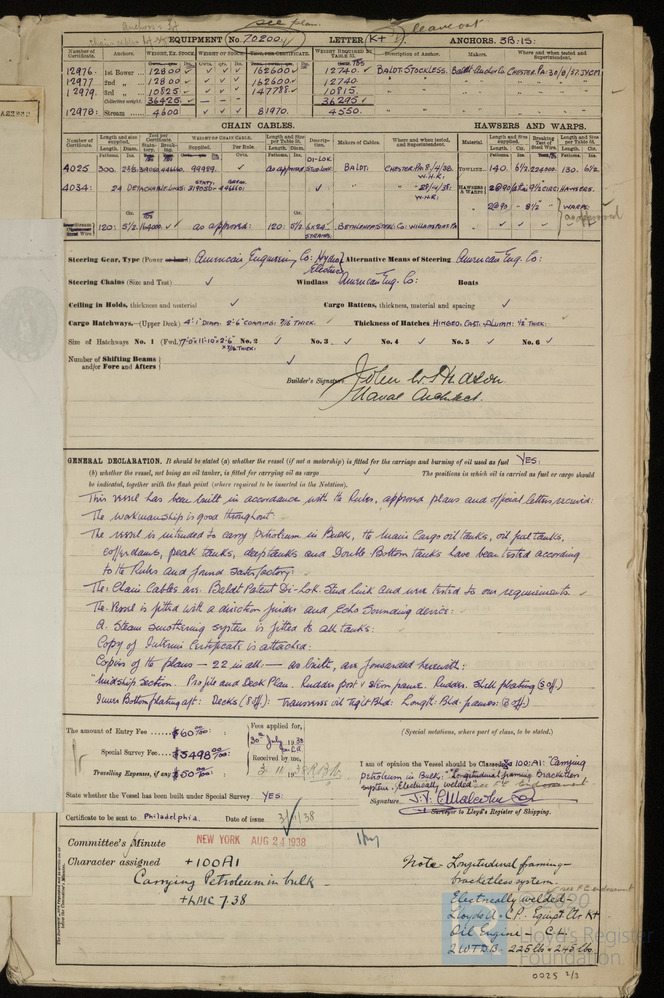 see plan.
leave out
EQUIPMENT (No. 70200.) LETTER K+ ANCHORS. 3B:1S:
Number of Certificate. Anchors. WEIGHT, EX. STOCK. WEIGHT OF STOCK. TEST, PER CERTIFICATE. WEIGHT REQUIRED BY TABLE 31. Description of Anchor. Makers. Where and when tested and Superintendent.
12976. 1st Bower 12800 ✓ ✓ ✓ 162600 ✓ 12740. ✓ BALDT. STOCKLESS. CHESTER. PA. 30/8/37. JYCM
12977 2nd „ 12800 ✓ ✓ ✓ 162600 ✓ 12740. „ „ „
12979. 3rd „ 10825 ✓ ✓ ✓ 147788 ✓ 10815 „ „ „
Collective weight. 36425 ✓ — — — 36295 ✓
12978: Stream 4600 ✓ ✓ 81970. 4550. „ „ „
CHAIN CABLES. HAWSERS AND WARPS.
Number of Certificate. Length and size supplied. Test per Certificate. WEIGHT OF CHAIN CABLE. Length and Size per Table 31. Description. Makers of Cables. Where and when tested, and Superintendent. Material Length and Size supplied. Breaking Test of Steel Wire. Length and Size per Table 31.
Supplied. Per Rule.
4025 300. 99989. ✓ as approved: DI-LOK STUD LINK BALDT. CHESTER PA 8/4/38. W.H.R. TOWLINE 140 6½ 224000. 130. 6½
4034: 24 DETACHABLE LINKS: „ 28/4/38: W.H.R. HAWSERS & WARPS HAWSERS.
2@90 - 8½" WARPS: as approved
120: 5½ 164000. ✓ ✓ as approved: 120: 5½ 6x24 STRANDS. BETHLEHEM STEEL Co: WILLIAMSPORT PA
Steering Gear, Type (Power or hand) American Engineering Co: Hydro Electric Alternative Means of Steering American Eng. Co:
Steering Chains (Size and Test) ✓ Windlass American Eng. Co: Boats
Ceiling in Holds, thickness and material ✓ Cargo Battens, thickness, material and spacing ✓
Cargo Hatchways.—(Upper Deck) 4'-1" DIAM: 2'-6" COAMING: 7/16 THICK: Thickness of Hatches HINGED. CAST. ALUMM: ½" THICK:
Size of Hatchways No. 1 (Fwd.) 17'-0"x11'-10"x2'-6" x 7/16 THICK: No. 2 ✓ No. 3 ✓ No. 4 ✓ No. 5 ✓ No. 6 ✓
Number of Shifting Beams and/or Fore and Afters ✓
Builder's Signature John W. Hudson.
Naval Architect.
GENERAL DECLARATION. It should be stated (a) whether the vessel (if not a motorship) is fitted for the carriage and burning of oil used as fuel YES:
(b) whether the vessel, not being an oil tanker, is fitted for carrying oil as cargo ✓ The positions in which oil is carried as fuel or cargo should
be indicated, together with the flash point (where required to be inserted in the Notation).
This vessel has been built in accordance with the Rules, approved plans and official letters received:
The workmanship is good throughout:
The vessel is intended to carry petroleum in Bulk, the main Cargo oil tanks, oil fuel tanks,
cofferdams, peak tanks, deeptanks and Double Bottom tanks have been tested according
to the Rules and found satisfactory:
The: Chain Cables are: Baldt Patent Di-Lok. Stud link and were tested to our requirements. ✓
The vessel is fitted with a direction finder and Echo Sounding device:
A. Steam smothering system is fitted to all tanks:
Copy of Interim Certificate is attached:
Copies of the plans — 22 in all: — as built, are forwarded herewith:
"Midship Section. Profile and Deck Plan. Rudder post & stern frame. Rudder. Shell plating (3 off.)
Inner Bottom plating aft: Decks (8 off.): Transverse oil Tight Bhd: Longitl: Bhd-frames: (2 off.)
The amount of Entry Fee $ 60 00/100:
Special Survey Fee $ 3498 00/100:
Travelling Expenses, if any $ 50 00/100:
Fees applied for,
30th July 1938
Received by me,
3.11.1938 R.B.K.
(Special notations, where part of class, to be stated.)
I am of opinion the Vessel should be Classed ✠ 100:A1: "Carrying
petroleum in Bulk: "Longitudinal framing Bracketless
system. Electrically welded" see F.E. endorsement
Signature J.Y. C. Malcolm
Surveyor to Lloyd's Register of Shipping.
State whether the Vessel has been built under Special Survey. YES:
Certificate to be sent to Philadelphia. Date of issue 3/11/38
Committee's Minute NEW YORK AUG 24 1938
Character assigned +100A1
Carrying Petroleum in bulk
+LMC 7.38
Note - Longitudinal framing -
bracketless system.
see F.E. endorsement
Electrically welded -
Lloyds A. & C.P. Equipt. Ltr K+
Oil Engine - C.H.
2WTDB - 225 lb & 245 lb
© 2020
Lloyd's Register
Foundation
0025 2/3